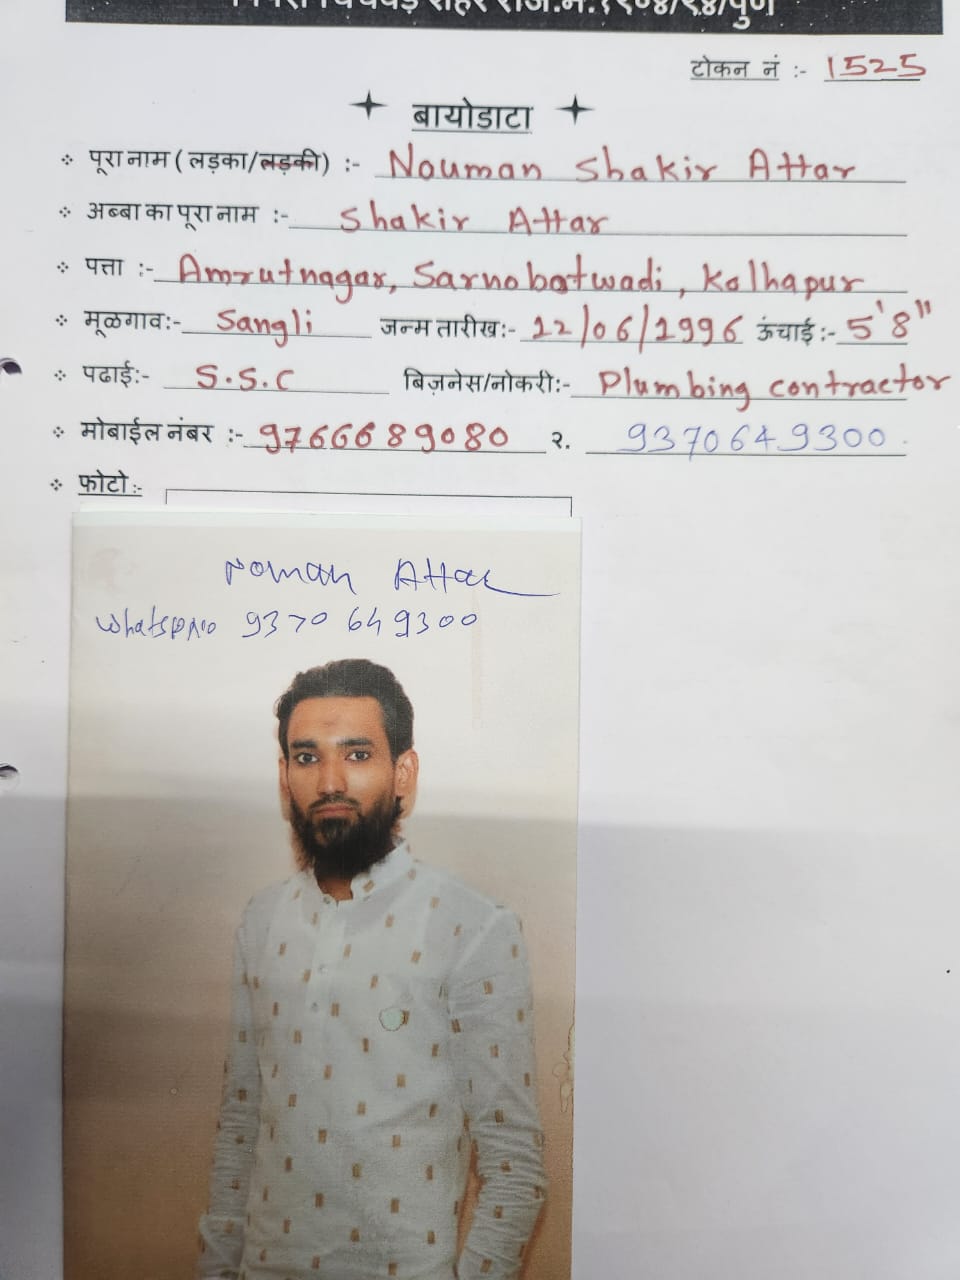 टोकन नं :- 1525
बायोडाटा
पूरा नाम ( लड़का/लड़की) :- Nouman Shakir Attar
अब्बा का पूरा नाम :- Shakir Attar
पत्ता :- Amrutnagar, Sarnobatwadi, Kolhapur
मूळगाव:- Sangli जन्म तारीख:- 12/06/1996 ऊंचाई :- 5'8"
पढाई:- S.S.C बिज़नेस/नोकरी:- Plumbing contractor
मोबाईल नंबर :- 9766689080 २. 9370649300
फोटो :-
Noman Attar
9370 649300